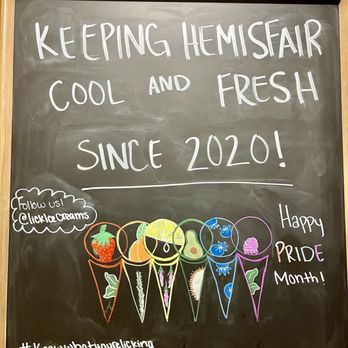 KEEPING HEMISFAIR
COOL AND FRESH
SINCE 2020!
Follow us!
@lickIceCreams
Happy
PRIDE
Month!
#Knowwhatyourelicking